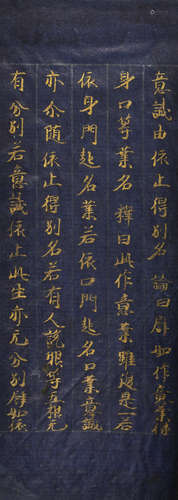 意識由依止得別名 論曰辟如作意業得
身口等業名 釋曰此作意業雖復是一若
依身門起名業若依口門起名口業意識
亦尒隨依止得別名若有人說眼等五根无
有分別若意識依止此生亦无分別辟如依